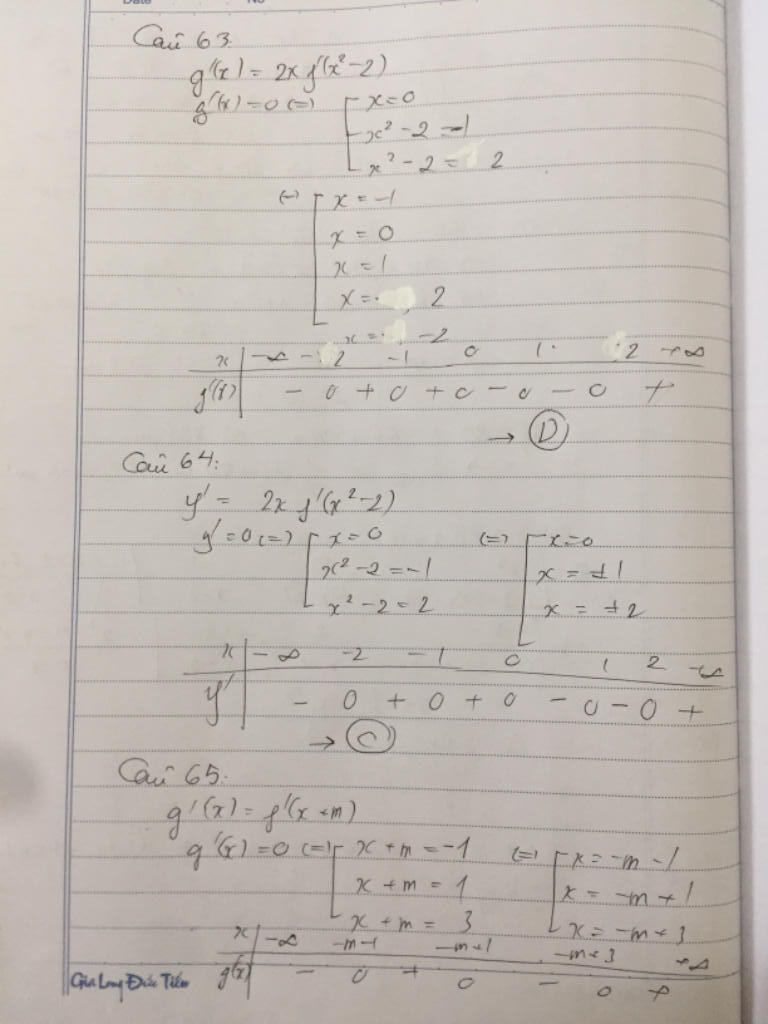 Date No
Câu 63.
g'(x) = 2x f'(x² - 2)
g'(x) = 0 (=) [ x = 0
x² - 2 = -1
x² - 2 = 2
(=) [ x = -1
x = 0
x = 1
x = 2
x = -2
x | -∞ -2 -1 0 1 2 +∞
g'(x) | - 0 + 0 + 0 - 0 - 0 +
→ D
Câu 64:
y' = 2x f'(x² - 2)
y' = 0 (=) [ x = 0 (=) [ x = 0
x² - 2 = -1 x = ±1
x² - 2 = 2 x = ±2
x | -∞ -2 -1 0 1 2 +∞
y' | - 0 + 0 + 0 - 0 - 0 +
→ C
Câu 65.
g'(x) = f'(x + m)
g'(x) = 0 (=) [ x + m = -1 (=) [ x = -m - 1
x + m = 1 x = -m + 1
x + m = 3 x = -m + 3
x | -∞ -m-1 -m+1 -m+3 +∞
g'(x) | - 0 + 0 - 0 +
Gia Long Đức Tiến